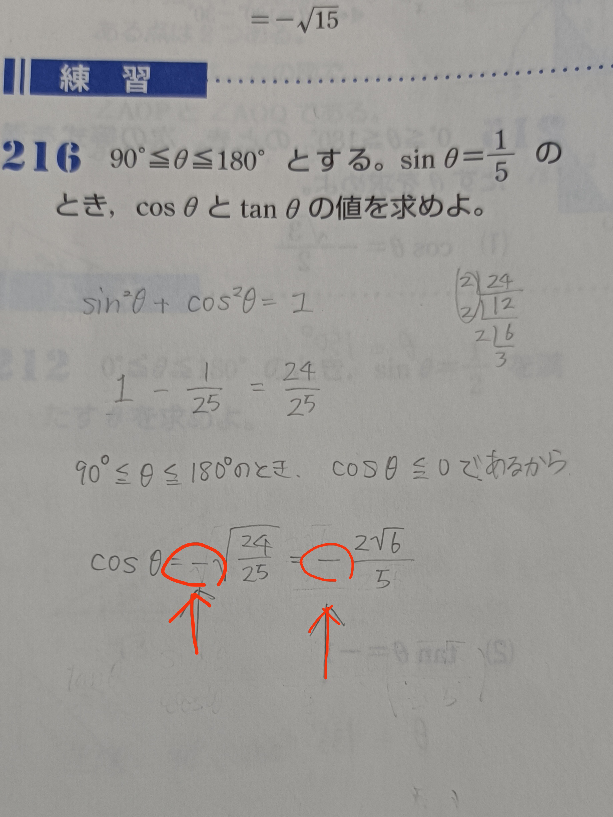 =-√15
練習
216 90°≦θ≦180° とする。sin θ=1/5 の
とき, cos θ と tan θ の値を求めよ。
sin²θ + cos²θ = 1
2) 24
2) 12
2) 6
3
1 - 1/25 = 24/25
90° ≦ θ ≦ 180°のとき、 cos θ ≦ 0 であるから
cos θ = -√(24/25) = - 2√6/5